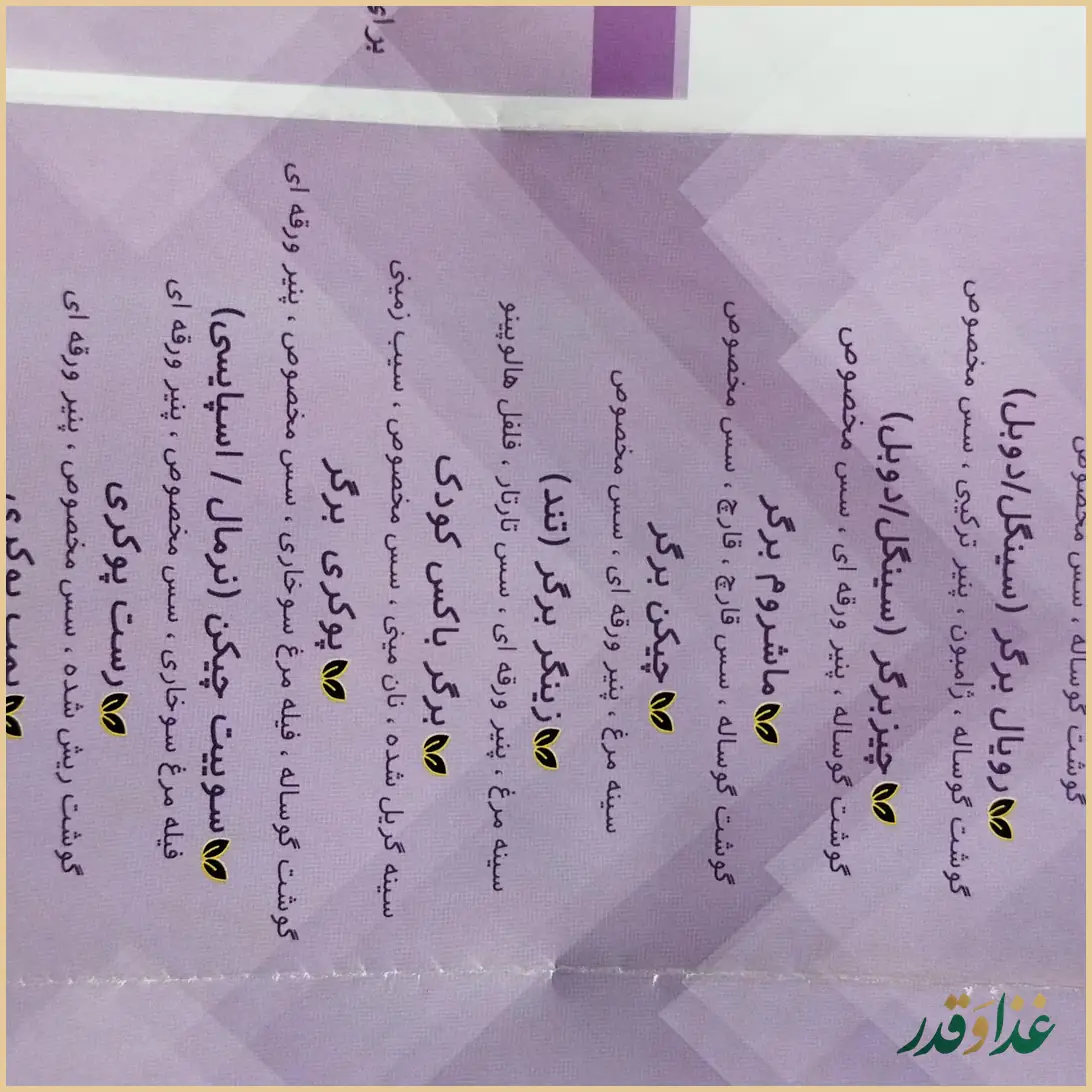 برای
گوشت گوساله ، سس مخصوص
رویال برگر (سینگل/دوبل)
گوشت گوساله ، ژامبون ، پنیر ترکیبی ، سس مخصوص
چیزبرگر (سینگل/دوبل)
گوشت گوساله ، پنیر ورقه ای ، سس مخصوص
ماشروم برگر
گوشت گوساله ، سس قارچ ، قارچ ، سس مخصوص
چیکن برگر
سینه مرغ ، پنیر ورقه ای ، سس مخصوص
زینگر برگر (تند)
سینه مرغ ، پنیر ورقه ای ، سس تارتار ، فلفل هالوپینو
برگر باکس کودک
سینه گریل شده ، نان مینی ، سس مخصوص ، سیب زمینی
پوکری برگر
گوشت گوساله ، فیله مرغ سوخاری ، سس مخصوص ، پنیر ورقه ای
سوییت چیکن (نرمال / اسپایسی)
فیله مرغ سوخاری ، سس مخصوص ، پنیر ورقه ای
رست پوکری
گوشت ریش شده ، سس مخصوص ، پنیر ورقه ای
غذا و قدر